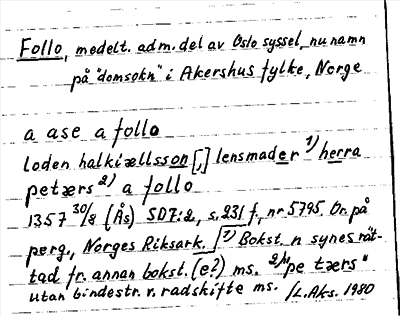 Follo, medelt. adm. del av Oslo syssel, nu namn
på "domsokn" i Akershus fylke, Norge
a ase a follo
loden halkiællsson [,] lensmader 1) herra
petærs 2) a follo
1357 30/8 (Ås) SD7:2, s. 231 f, nr 5795. Or. på
perg., Norges Riksark. 1) Bokst. n synes rät-
tad fr. annan bokst. (e?) ms. 2) "pe tærs"
utan bindestr. v. radskifte ms. /L. Aks. 1980